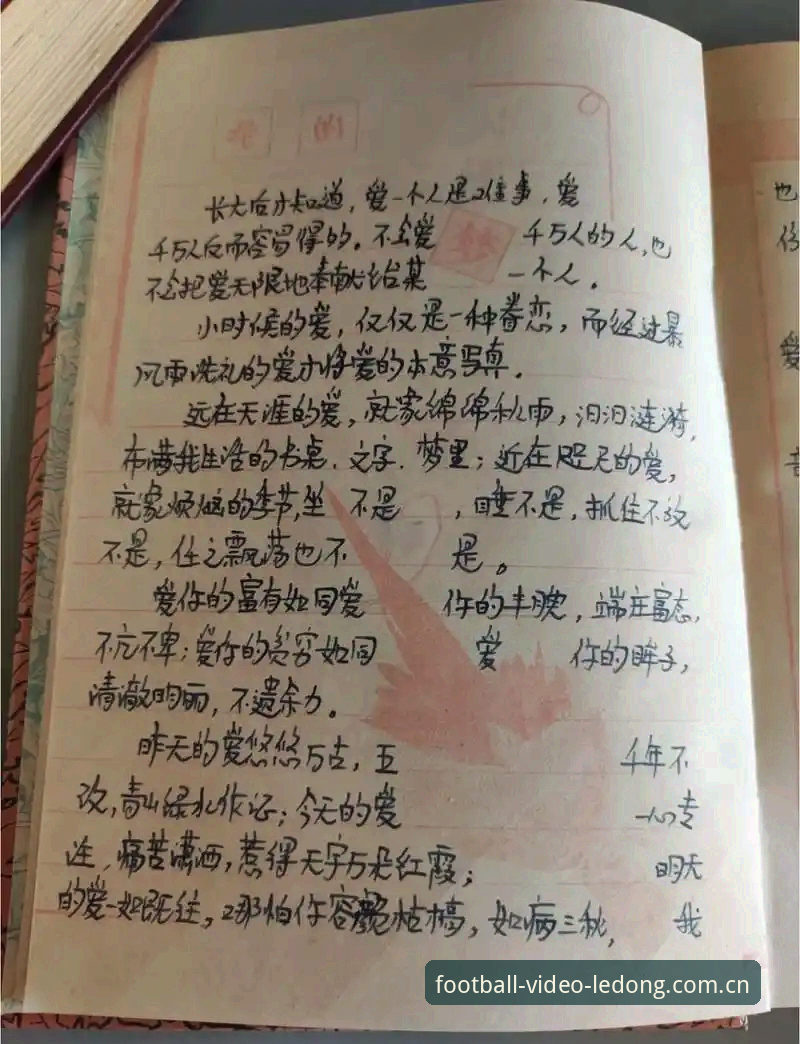 长大后才知道，爱一个人是难事，爱
千万人反而容易得的。不会爱 千万人的人，也
不会把爱无限地奉献给某 一个人。
小时候的爱，仅仅是一种眷恋，而经过暴
风雨洗礼的爱才将爱的本意写真。
远在天涯的爱，就象绵绵秋雨，汨汨涟漪，
布满我生活的书桌、文字、梦里；近在咫尺的爱，
就象烦恼的季节，坐 不是 ，睡不是，抓住不放
不是，任之飘荡也不 是。
爱你的富有如同爱 你的丰腴，端庄富态，
不亢不卑；爱你的贫穷如同 爱 你的眸子，
清澈明丽，不遗余力。
昨天的爱悠悠万古，五 千年不
改，青山绿水作证；今天的爱 一心专
注，痛苦潇洒，惹得天宇万朵红霞； 明天
的爱一如既往，哪怕你容貌枯槁，如病三秋， 我
也
爱
football-video-ledong.com.cn